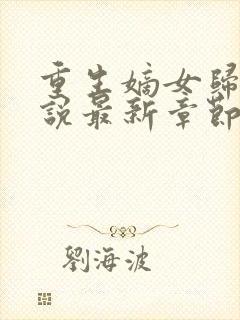 重生嫡女歸
說最新章節
劉海波